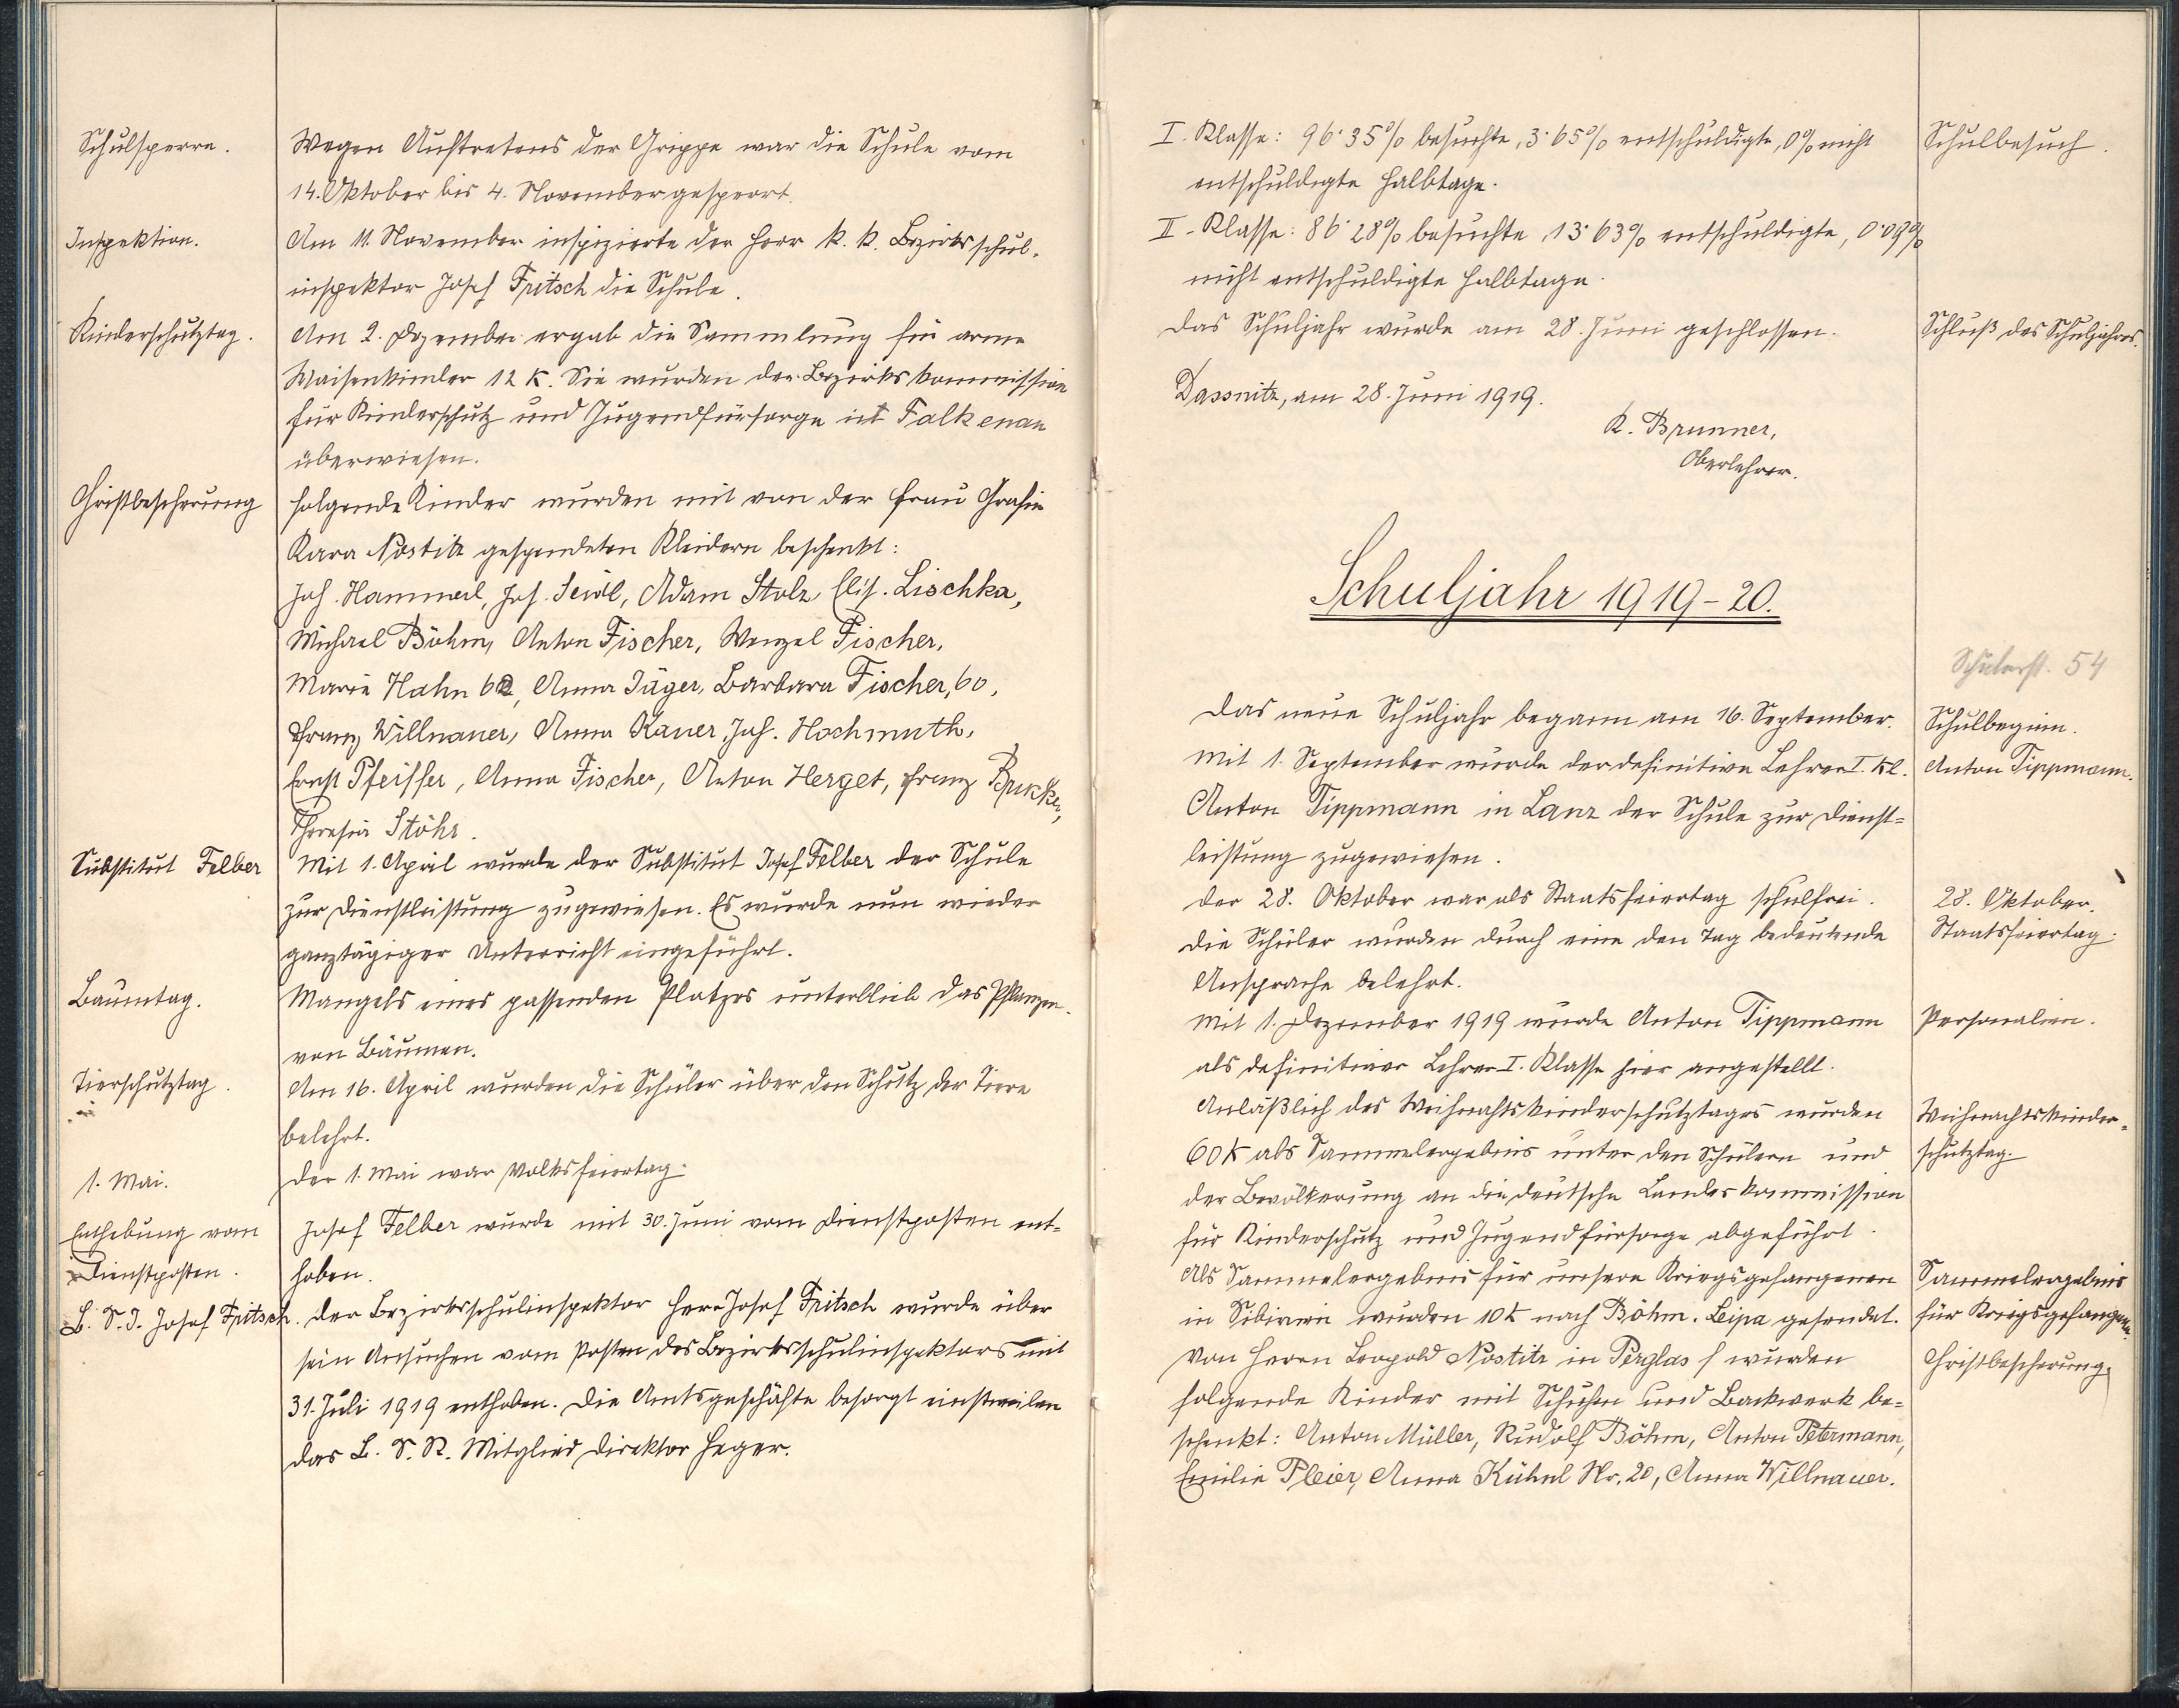 Schulsperre.
Wegen Auftretens der Grippe war die Schule vom
14. Oktober bis 4. November gesperrt.
Inspektion.
Am 11. November inspizierte der Herr k. k. Bezirksschul-
inspektor Josef Fritsch die Schule.
Kinderschutztag.
Am 2. Dezember ergab die Sammlung für arme
Waisenkinder 12 K. Sie wurden der Bezirkskommission
für Kinderschutz und Jugendfürsorge in Falkenau
überwiesen.
Christbescherung
Folgende Kinder wurden mit von der Frau Gräfin
Kara Nostitz gespendeten Kleidern beschenkt:
Joh. Hammerl, Jos. Seidl, Adam Stolz, Elis. Lischka,
Michael Böhm, Anton Fischer, Wenzel Fischer,
Marie Hahn 62, Anna Jäger, Barbara Fischer, 60,
Franz Willnauer, Anna Kauer, Joh. Hochmuth,
Ernst Pfeiffer, Anna Fischer, Anton Herget, Franz
Theresia Stöhr.
Substitut Felber
Mit 1. April wurde der Substitut Josef Felber der Schule
zur Dienstleistung zugewiesen. Es wurde nun wieder
ganztägiger Unterricht eingeführt.
Baumtag.
Mangels eines passenden Platzes unterblieb das Pflanzen
von Bäumen.
Tierschutztag.
Am 16. April wurden die Schüler über den Schutz der Tiere
belehrt.
1. Mai.
Der 1. Mai war Volksfeiertag.
Enthebung vom
Josef Felber wurde mit 30. Juni vom Dienstposten ent-
Dienstposten.
hoben.
B. S. I. Josef Fritsch.
Der Bezirksschulinspektor Herr Josef Fritsch wurde über
sein Ansuchen vom Posten des Bezirksschulinspektors mit
31. Juli 1919 enthoben. Die Amtsgeschäfte besorgt einstweilen
das B. S. R. Mitglied Direktor Heger.
I. Klasse: 96·35% besuchte, 3·65% entschuldigte, 0% nicht
Schulbesuch.
entschuldigte Halbtage.
II. Klasse: 86·28% besuchte, 13·63% entschuldigte, 0·09%
nicht entschuldigte Halbtage.
Das Schuljahr wurde am 28. Juni geschlossen.
Schluß des Schuljahres.
Dassnitz, am 28. Juni 1919.
K. Brunner,
Oberlehrer.
Schuljahr 1919-20.
Schülerst. 54
Das neue Schuljahr begann am 16. September.
Schulbeginn.
Mit 1. September wurde der definitive Lehrer I. Kl.
Anton Tippmann.
Anton Tippmann in Lanz der Schule zur Dienst-
leistung zugewiesen.
Der 28. Oktober war als Staatsfeiertag schulfrei.
28. Oktober.
Die Schüler wurden durch eine den Tag bedeutende
Staatsfeiertag.
Ansprache belehrt.
Mit 1. Dezember 1919 wurde Anton Tippmann
Personalien.
als definitiver Lehrer I. Klasse hier angestellt.
Anläßlich des Weihnachtskinderschutztages wurden
Weihnachtskinder-
60 K als Sammelergebnis unter den Schülern und
schutztag.
der Bevölkerung an die deutsche Landeskommission
für Kinderschutz und Jugendfürsorge abgeführt.
Als Sammelergebnis für unsere Kriegsgefangenen
Sammelergebnis
in Sibirien wurden 10 K nach Böhm. Leipa gesendet.
für Kriegsgefangene.
Von Herrn Leopold Nostitz in Perglas wurden
Christbescherung.
folgende Kinder mit Schuhen und Backwerk be-
schenkt: Anton Müller, Rudolf Böhm, Anton Petermann,
Emilie Pleier, Anna Kühnl Nr. 20, Anna Willnauer.